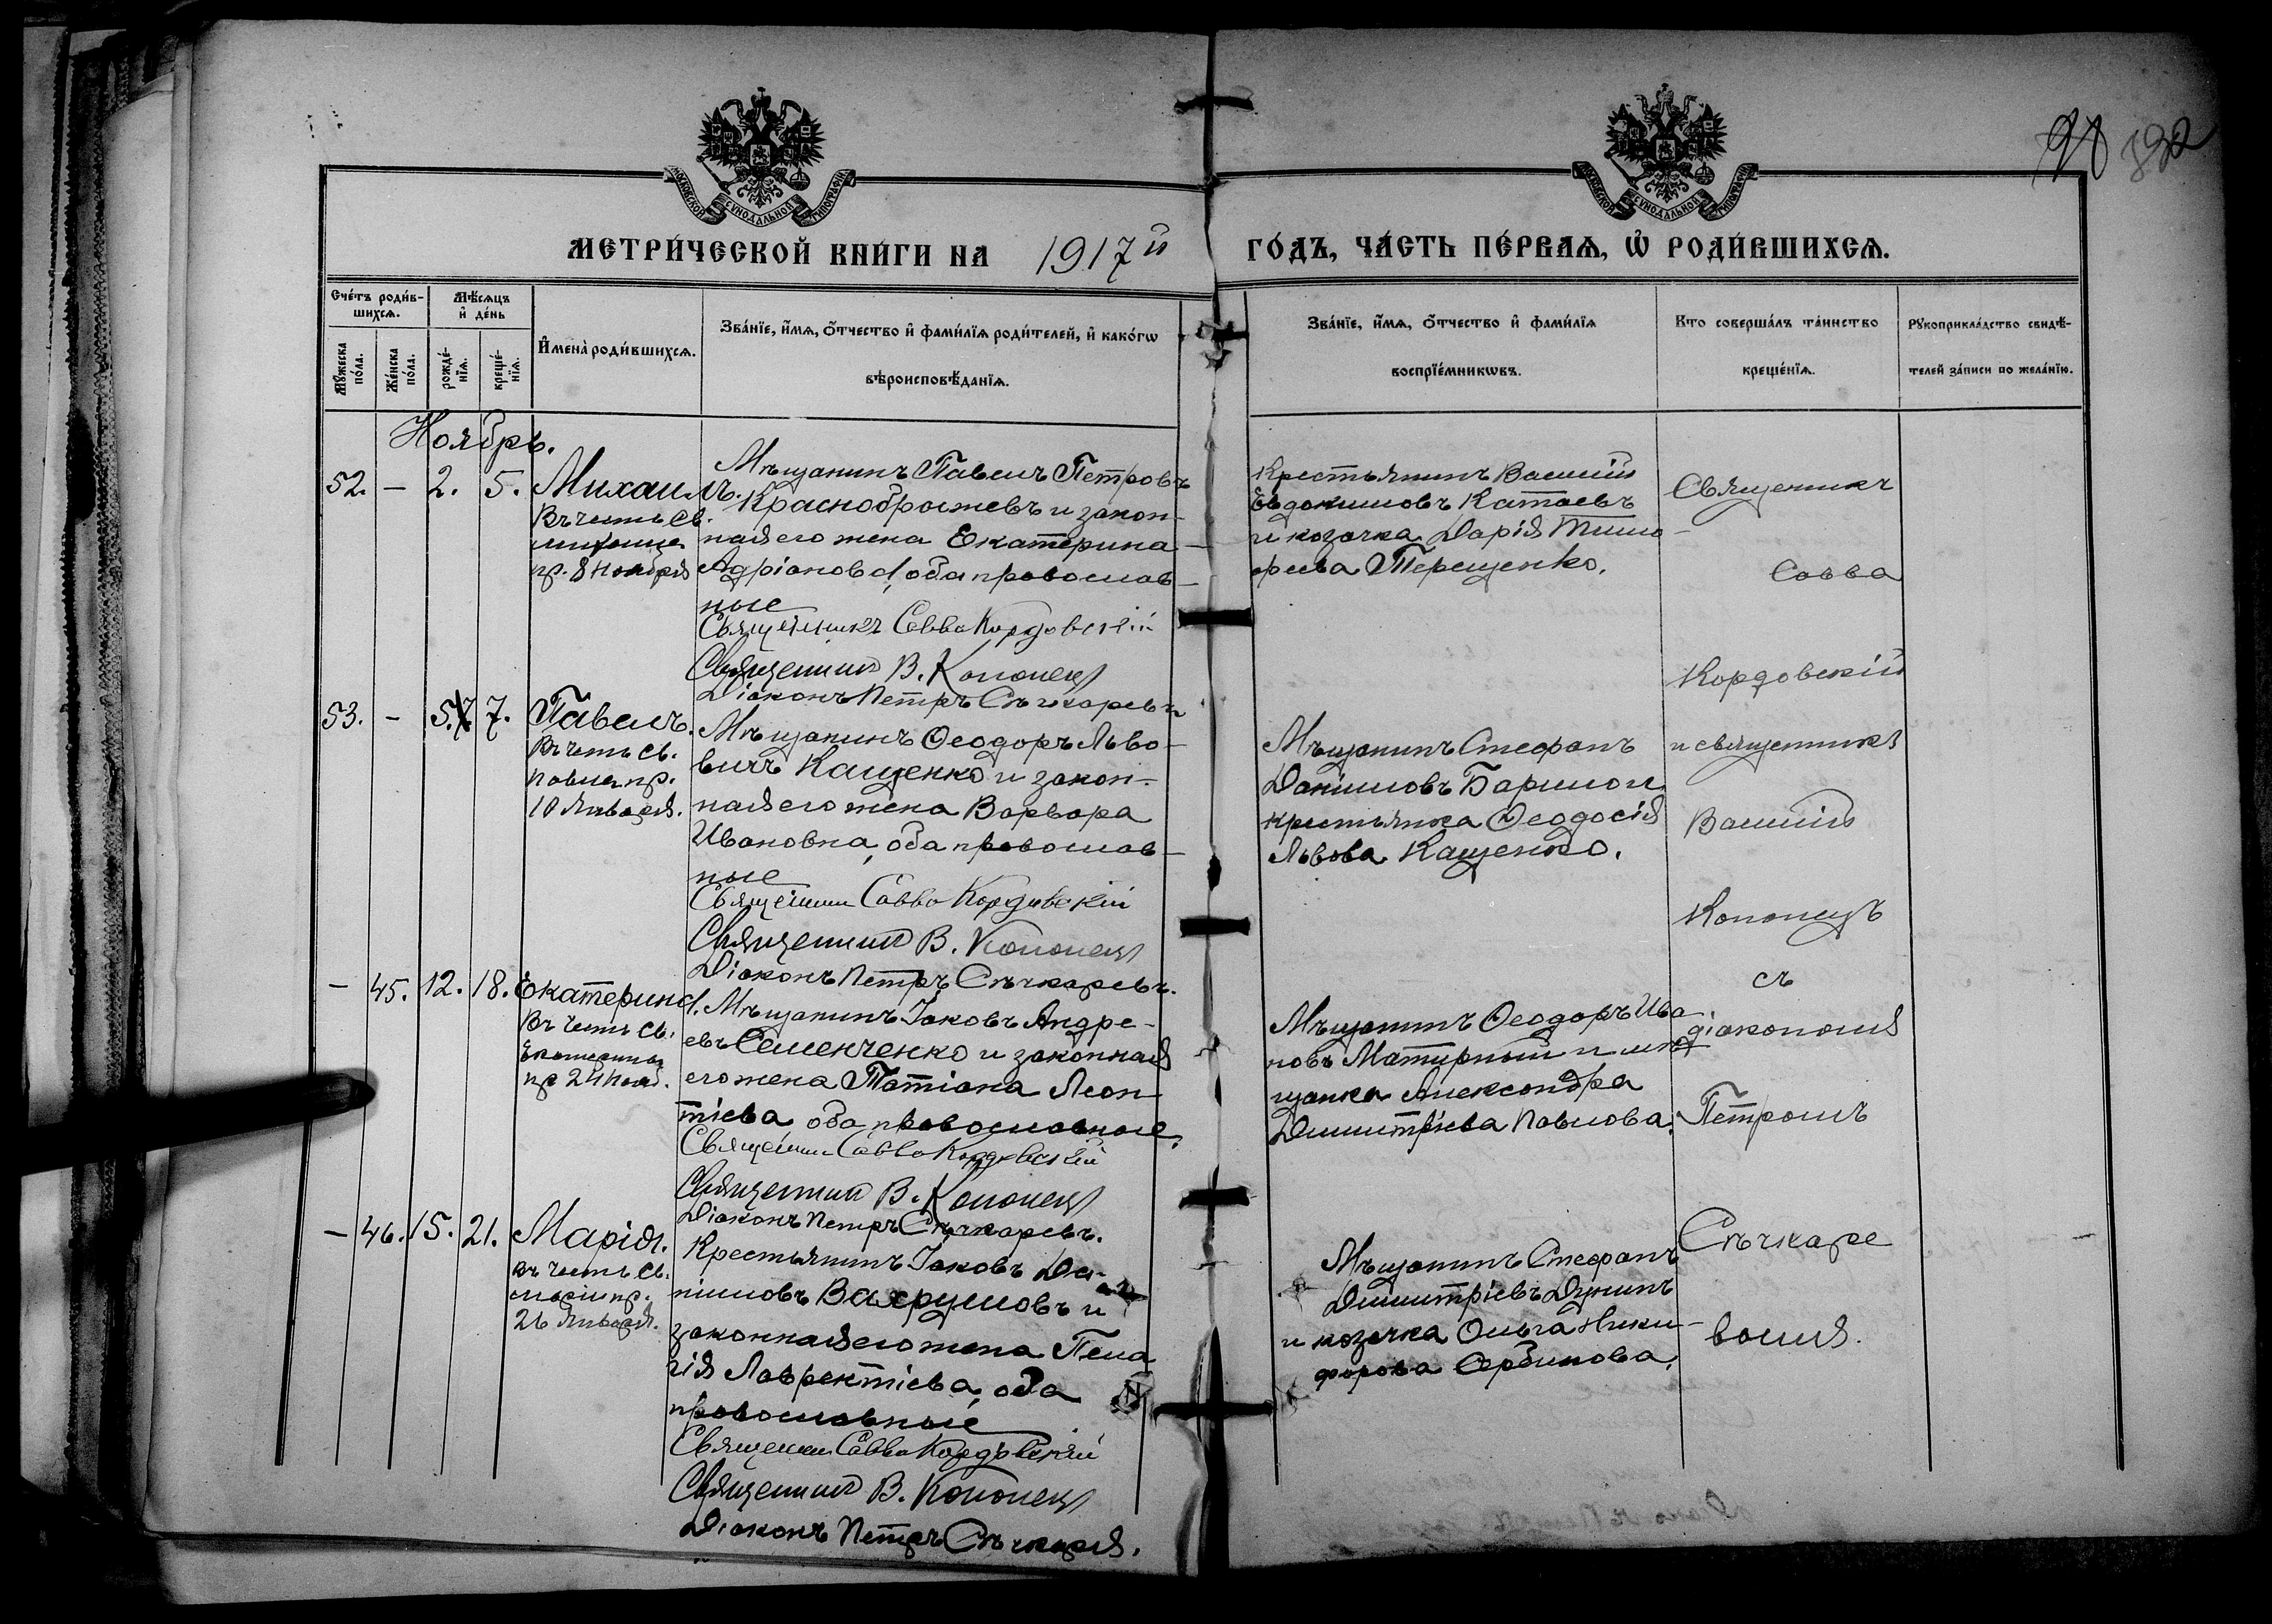 98 892
МОСКОВСКОЙ СѴНОДАЛЬНОЙ ТИПОГРАФІИ
МОСКОВСКОЙ СѴНОДАЛЬНОЙ ТИПОГРАФІИ
МЕТРИ́ЧЕСКОЙ КНИ́ГИ НА 1917й ГО́ДЪ, ЧА́СТЬ ПЕ́РВАѦ, Ѡ҆ РОДИ́ВШИХСѦ.
Сче́тъ роди́в-
шихсѧ.
Мѣ́сѧцъ
и҆ де́нь
Мꙋ́жеска по́ла.
Же́нска по́ла.
рожде́-
нїѧ.
креще́-
нїѧ.
И҆мена̀ роди́вшихсѧ.
Зва́нїе, и҆́мѧ, о҆́тчество и҆ фами́лїѧ роди́телей, и҆ како́гѡ
вѣроисповѣ́данїѧ.
Зва́нїе, и҆́мѧ, о҆́тчество и҆ фами́лїѧ
воспрїе́мникѡвъ.
Кто соверша́лъ та́инство
креще́нїѧ.
Рꙋкоприкла́дство свидѣ́-
телей за́писи по жела́нїю.
Ноябрь.
52. – 2. 5. Михаилъ.
Въ честь св.
Михаила
пр. 8 Ноября
Мѣщанинъ Павелъ Петровъ
Краснобрыжевъ и закон-
ная его жена Екатерина
Адріанова, оба православ-
ные
Священникъ Савва Кордовскій
Священникъ В. Кононецъ
Діаконъ Петръ Сѣчкаревъ
Крестьянинъ Василій
Евдокимовъ Катаевъ
и козачка Дарія Тимо-
феева Терещенко.
Священникъ
Савва
Кордовскій
и священникъ
Василій
Кононецъ
съ
діакономъ
Петромъ
Сѣчкаре
вымъ.
53. – 5. 7. Павелъ.
Въ честь св.
Павла пр.
10 Января.
Мѣщанинъ Ѳеодоръ Льво-
вичъ Кащенко и закон-
ная его жена Варвара
Ивановна, оба православ-
ные
Священникъ Савва Кордовскій
Священникъ В. Кононецъ
Діаконъ Петръ Сѣчкаревъ.
Мѣщанинъ Стефанъ
Даниловъ
крестьянка Ѳеодосія
Львова Кащенко.
– 45. 12. 18. Екатерина.
Въ честь св.
Екатерины
пр 24 Нояб.
Мѣщанинъ Іаковъ Андре-
евъ Семенченко и законная
его жена Татіана Леон-
тіева оба православные.
Священникъ Савва Кордовскій
Священникъ В. Кононецъ
Діаконъ Петръ Сѣчкаревъ.
Мѣщанинъ Ѳеодоръ Ива-
новъ и мѣ-
щанка Александра
Димитріева Павлова.
– 46. 15. 21. Марія.
Въ честь св.
Маріи пр.
26 Января.
Крестьянинъ Іаковъ Да-
ніиловъ Вахрушовъ и
законная его жена Пела
гія Лаврентіева, оба
православные
Священникъ Савва Кордовскій
Священникъ В. Кононецъ
Діаконъ Петръ
Мѣщанинъ Стефанъ
Димитріевъ Дунинъ
и козачка Ольга Ники-
форова Сербинова.